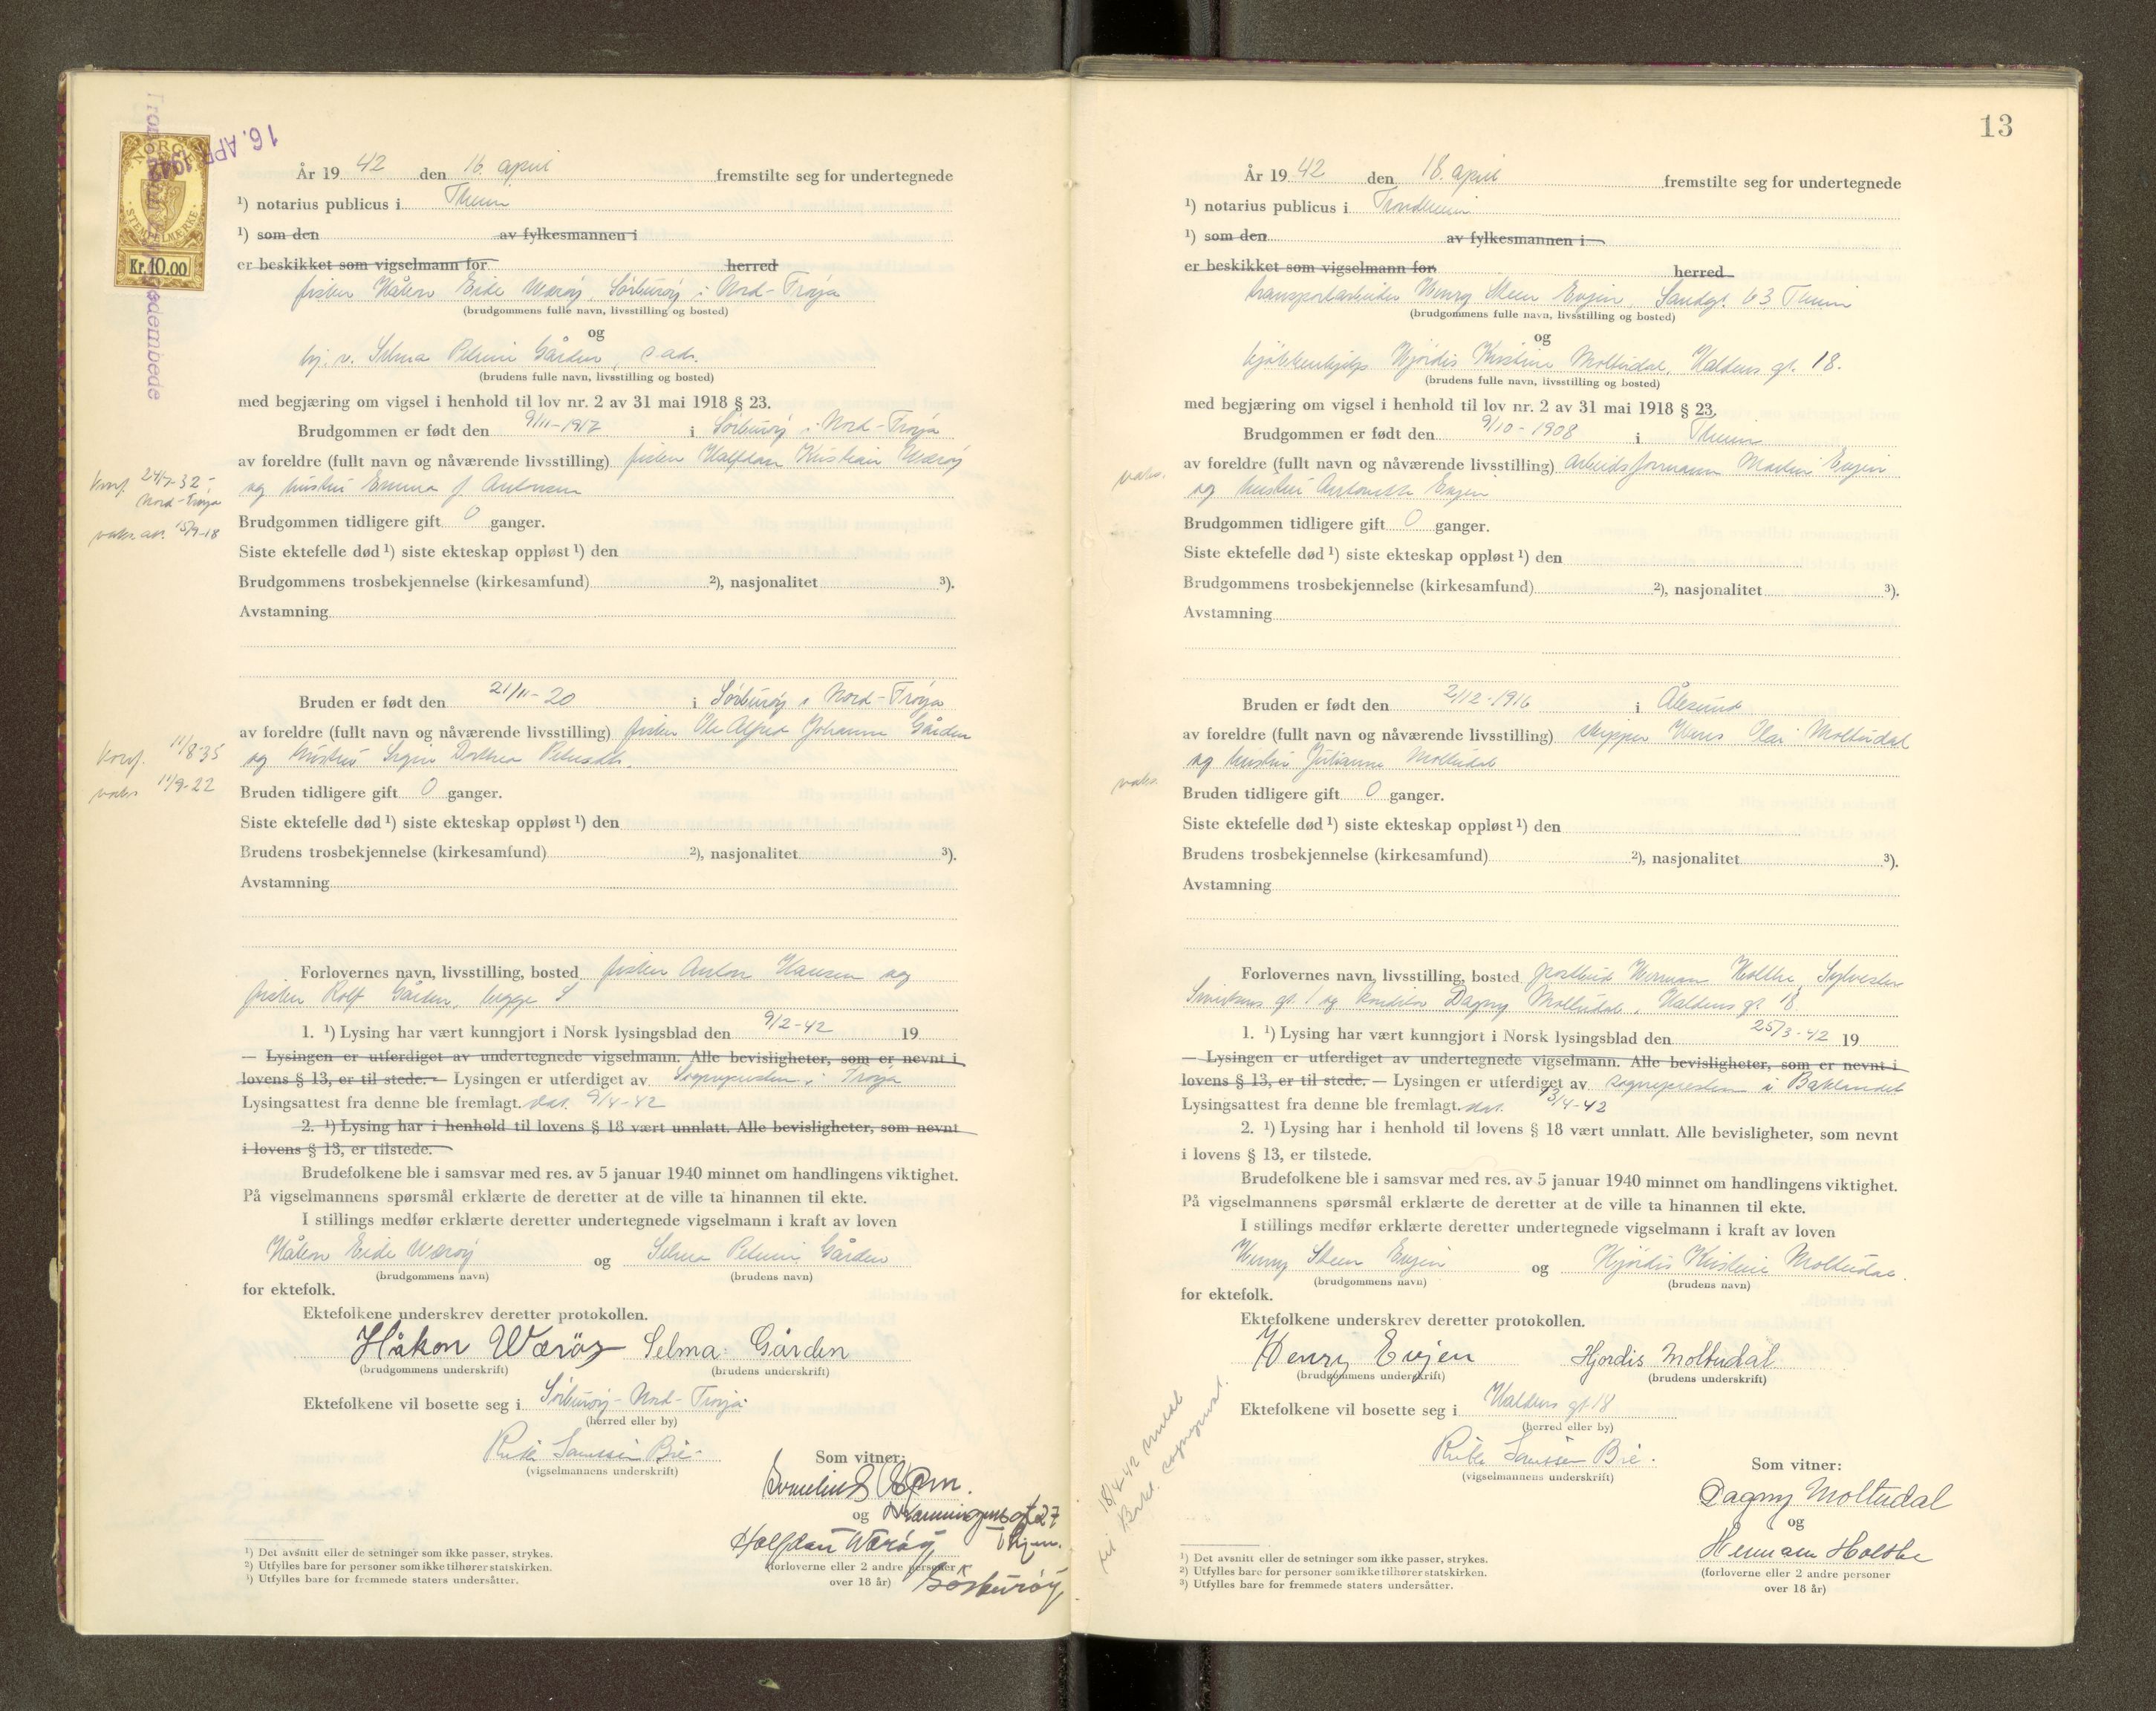 16. APR. 1942
NORGE
STEMPELMÆRKE
Kr. 10.00
År 19 42 den 16. april fremstilte seg for undertegnede
¹) notarius publicus i Theim
¹) som den av fylkesmannen i
er beskikket som vigselmann for herred
fisker Håkon Eide Værøy, Sørburøy i Nord-Frøya
(brudgommens fulle navn, livsstilling og bosted)
og
hj. v. Selma Petrine Gården, s. adr.
(brudens fulle navn, livsstilling og bosted)
med begjæring om vigsel i henhold til lov nr. 2 av 31 mai 1918 § 23.
Brudgommen er født den 9/11-1917 i Sørburøy i Nord-Frøya
av foreldre (fullt navn og nåværende livsstilling) fisker Halfdan Kristian Værøy
konf. 24/7-32 -
Nord-Frøya
og hustru Emma J. Antonsen
Brudgommen tidligere gift 0 ganger.
vaks. att. 15/9-18
Siste ektefelle død ¹) siste ekteskap oppløst ¹) den
Brudgommens trosbekjennelse (kirkesamfund) ²), nasjonalitet ³).
Avstamning
Bruden er født den 21/11-20 i Sørburøy i Nord-Frøya
av foreldre (fullt navn og nåværende livsstilling) fisker Ole Alfred Johannes Gården
konf. 11/8-35
og hustru Dothea
vaks 11/9-22
Bruden tidligere gift 0 ganger.
Siste ektefelle død ¹) siste ekteskap oppløst ¹) den
Brudens trosbekjennelse (kirkesamfund) ²), nasjonalitet ³).
Avstamning
Forlovernes navn, livsstilling, bosted fisker Anton Hansen og
fisker Rolf Gården, begge S
1. ¹) Lysing har vært kunngjort i Norsk lysingsblad den 9/2-42 19
— Lysingen er utferdiget av undertegnede vigselmann. Alle bevisligheter, som er nevnt i
lovens § 13, er til stede. — Lysingen er utferdiget av Sognepresten i Frøya
Lysingsattest fra denne ble fremlagt. dat. 9/4-42
2. ¹) Lysing har i henhold til lovens § 18 vært unnlatt. Alle bevisligheter, som nevnt
i lovens § 13, er tilstede.
Brudefolkene ble i samsvar med res. av 5 januar 1940 minnet om handlingens viktighet.
På vigselmannens spørsmål erklærte de deretter at de ville ta hinannen til ekte.
I stillings medfør erklærte deretter undertegnede vigselmann i kraft av loven
Håkon Eide Værøy og Selma Petrine Gården
(brudgommens navn) (brudens navn)
for ektefolk.
Ektefolkene underskrev deretter protokollen.
Håkon Værøy Selma Gården
(brudgommens underskrift) (brudens underskrift)
Ektefolkene vil bosette seg i Sørburøy - Nord-Frøya.
(herred eller by)
(vigselmannens underskrift)
Som vitner:
og
Halfdan Værøy
(forloverne eller 2 andre personer
over 18 år) Sörburöy
¹) Det avsnitt eller de setninger som ikke passer, strykes.
²) Utfylles bare for personer som ikke tilhører statskirken.
³) Utfylles bare for fremmede staters undersåtter.
13
År 19 42 den 18. april fremstilte seg for undertegnede
¹) notarius publicus i Trondheim
¹) som den av fylkesmannen i
er beskikket som vigselmann for herred
transportarbeider Henry Steen Evjen, Sandgt. 63 Theim
(brudgommens fulle navn, livsstilling og bosted)
og
kjøkkenhjelp Hjørdis Kristine Moltudal, Haldens gt. 18.
(brudens fulle navn, livsstilling og bosted)
med begjæring om vigsel i henhold til lov nr. 2 av 31 mai 1918 § 23.
Brudgommen er født den 9/10-1908 i Theim
vaks.
av foreldre (fullt navn og nåværende livsstilling) arbeidsformann Martin Evjen
og hustru Antonette Evjen
Brudgommen tidligere gift 0 ganger.
Siste ektefelle død ¹) siste ekteskap oppløst ¹) den
Brudgommens trosbekjennelse (kirkesamfund) ²), nasjonalitet ³).
Avstamning
Bruden er født den 2/12-1916 i Ålesund
av foreldre (fullt navn og nåværende livsstilling) skipper Hans Olai Moltudal
og hustru Julianne Moltudal
vaks.
Bruden tidligere gift 0 ganger.
Siste ektefelle død ¹) siste ekteskap oppløst ¹) den
Brudens trosbekjennelse (kirkesamfund) ²), nasjonalitet ³).
Avstamning
Forlovernes navn, livsstilling, bosted postbud Herman Holthe, Sylvester
Sivertsens gt. 1 og konditor Dagny Moltudal, Haldens gt 18.
1. ¹) Lysing har vært kunngjort i Norsk lysingsblad den 25/3-42 19
— Lysingen er utferdiget av undertegnede vigselmann. Alle bevisligheter, som er nevnt i
lovens § 13, er til stede. — Lysingen er utferdiget av sognepresten i Baklandet
Lysingsattest fra denne ble fremlagt. dat. 13/4-42
2. ¹) Lysing har i henhold til lovens § 18 vært unnlatt. Alle bevisligheter, som nevnt
i lovens § 13, er tilstede.
Brudefolkene ble i samsvar med res. av 5 januar 1940 minnet om handlingens viktighet.
På vigselmannens spørsmål erklærte de deretter at de ville ta hinannen til ekte.
I stillings medfør erklærte deretter undertegnede vigselmann i kraft av loven
Henry Steen Evjen og Hjørdis Kristine Moltudal.
(brudgommens navn) (brudens navn)
for ektefolk.
Ektefolkene underskrev deretter protokollen.
Henry Evjen Hjørdis Moltudal
(brudgommens underskrift) (brudens underskrift)
Ektefolkene vil bosette seg i Haldens gt 18
(herred eller by)
18/4-42 meldt
til Bakl. sogneprest.
(vigselmannens underskrift)
Som vitner:
Dagny Moltudal
og
Herman Holthe
(forloverne eller 2 andre personer
over 18 år)
¹) Det avsnitt eller de setninger som ikke passer, strykes.
²) Utfylles bare for personer som ikke tilhører statskirken.
³) Utfylles bare for fremmede staters undersåtter.